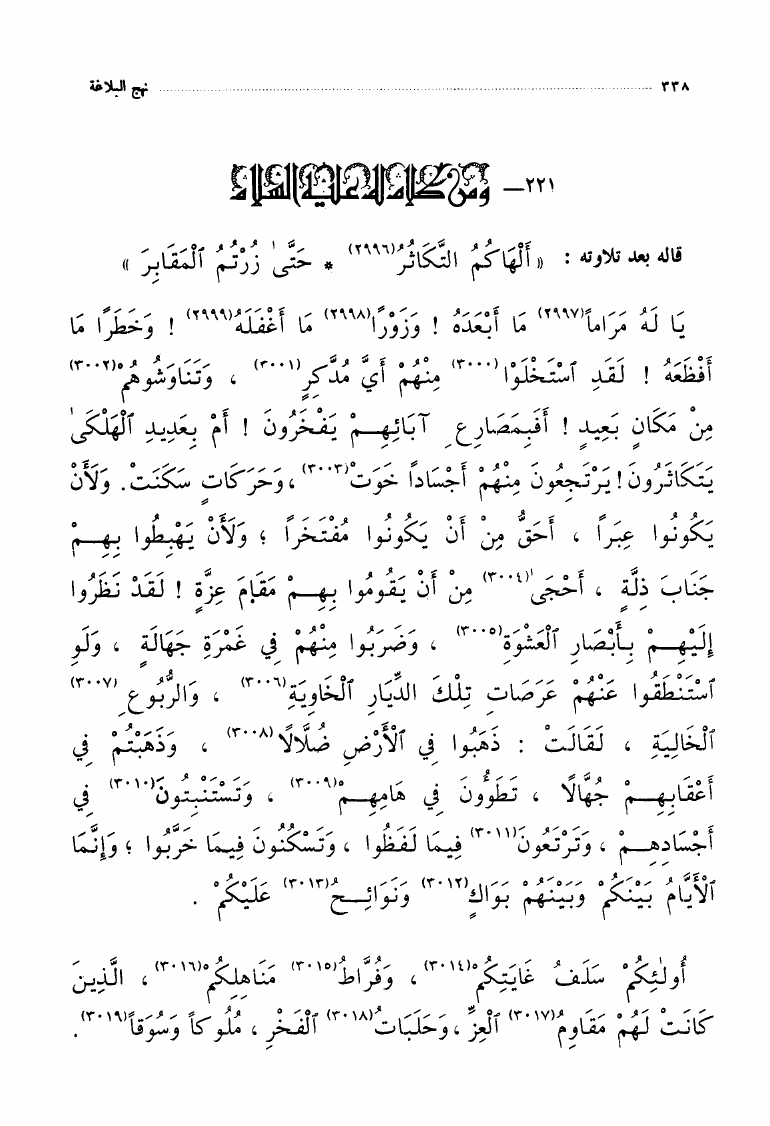 ٣٣٨ نهج البلاغة
٢٢١ـ ومن كلام له عليه السلام
قاله بعد تلاوته : « أَلْهَاكُمُ التَّكَاثُرُ(٢٩٩٦) * حَتَّىٰ زُرْتُمُ ٱلْمَقَابِرَ »
يَا لَهُ مَرَاماً(٢٩٩٧) مَا أَبْعَدَهُ ! وَزَوْرًا(٢٩٩٨) مَا أَغْفَلَهُ(٢٩٩٩) ! وَخَطَرًا مَا
أَفْظَعَهُ ! لَقَدِ ٱسْتَخْلَوْا(٣٠٠٠) مِنْهُمْ أَيَّ مُدَّكِرٍ(٣٠٠١) ، وَتَنَاوَشُوهُمْ(٣٠٠٢)
مِنْ مَكَانٍ بَعِيدٍ ! أَفَبِمَصَارِعِ آبَائِهِمْ يَفْخَرُونَ ! أَمْ بِعَدِيدِ ٱلْهَلْكَىٰ
يَتَكَاثَرُونَ! يَرْتَجِعُونَ مِنْهُمْ أَجْسَاداً خَوَتْ(٣٠٠٣)، وَحَرَكَاتٍ سَكَنَتْ. وَلَأَنْ
يَكُونُوا عِبَراً ، أَحَقُّ مِنْ أَنْ يَكُونُوا مُفْتَخَراً ؛ وَلَأَنْ يَهْبِطُوا بِهِمْ
جَنَابَ ذِلَّةٍ ، أَحْجَىٰ(٣٠٠٤) مِنْ أَنْ يَقُومُوا بِهِمْ مَقَامَ عِزَّةٍ ! لَقَدْ نَظَرُوا
إِلَيْهِمْ بِأَبْصَارِ ٱلْعَشْوَةِ(٣٠٠٥) ، وَضَرَبُوا مِنْهُمْ فِي غَمْرَةِ جَهَالَةٍ ، وَلَوِ
ٱسْتَنْطَقُوا عَنْهُمْ عَرَصَاتِ تِلْكَ الدِّيَارِ ٱلْخَاوِيَةِ(٣٠٠٦) ، وَالرُّبُوعِ(٣٠٠٧)
ٱلْخَالِيَةِ ، لَقَالَتْ : ذَهَبُوا فِي ٱلْأَرْضِ ضُلَّالًا(٣٠٠٨) ، وَذَهَبْتُمْ فِي
أَعْقَابِهِمْ جُهَّالًا ، تَطَؤُونَ فِي هَامِهِمْ(٣٠٠٩) ، وَتَسْتَنْبِتُونَ(٣٠١٠) فِي
أَجْسَادِهِمْ ، وَتَرْتَعُونَ(٣٠١١) فِيمَا لَفَظُوا ، وَتَسْكُنُونَ فِيمَا خَرَّبُوا ؛ وَإِنَّمَا
ٱلْأَيَّامُ بَيْنَكُمْ وَبَيْنَهُمْ بَوَاكٍ(٣٠١٢) وَنَوَائِحُ(٣٠١٣) عَلَيْكُمْ .
أُولٰئِكُمْ سَلَفُ غَايَتِكُمْ(٣٠١٤) ، وَفُرَّاطُ(٣٠١٥) مَنَاهِلِكُمْ(٣٠١٦) ، الَّذِينَ
كَانَتْ لَهُمْ مَقَاوِمُ(٣٠١٧) ٱلْعِزِّ ، وَحَلَبَاتُ(٣٠١٨) ٱلْفَخْرِ ، مُلُوكاً وَسُوَقاً(٣٠١٩).